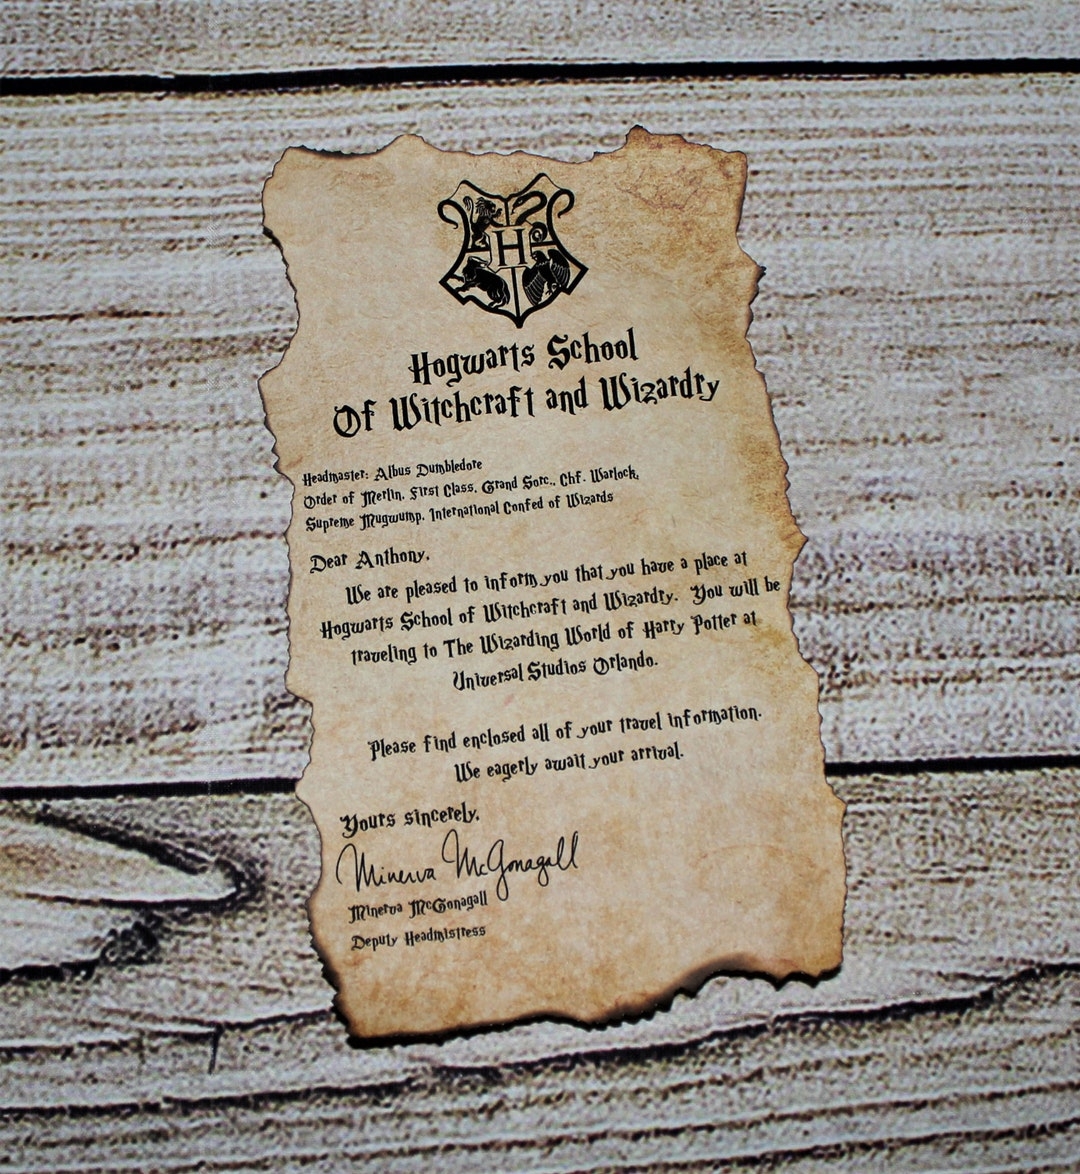 H
Hogwarts School
Of Witchcraft and Wizardry
Headmaster: Albus Dumbledore
Order of Merlin, First Class, Grand Sorc., Chf. Warlock,
Supreme Mugwump, International Confed of Wizards
Dear Anthony,
We are pleased to inform you that you have a place at
Hogwarts School of Witchcraft and Wizardry. You will be
traveling to The Wizarding World of Harry Potter at
Universal Studios Orlando.
Please find enclosed all of your travel information.
We eagerly await your arrival.
Yours sincerely,
Minerva McGonagall
Minerva McGonagall
Deputy Headmistress